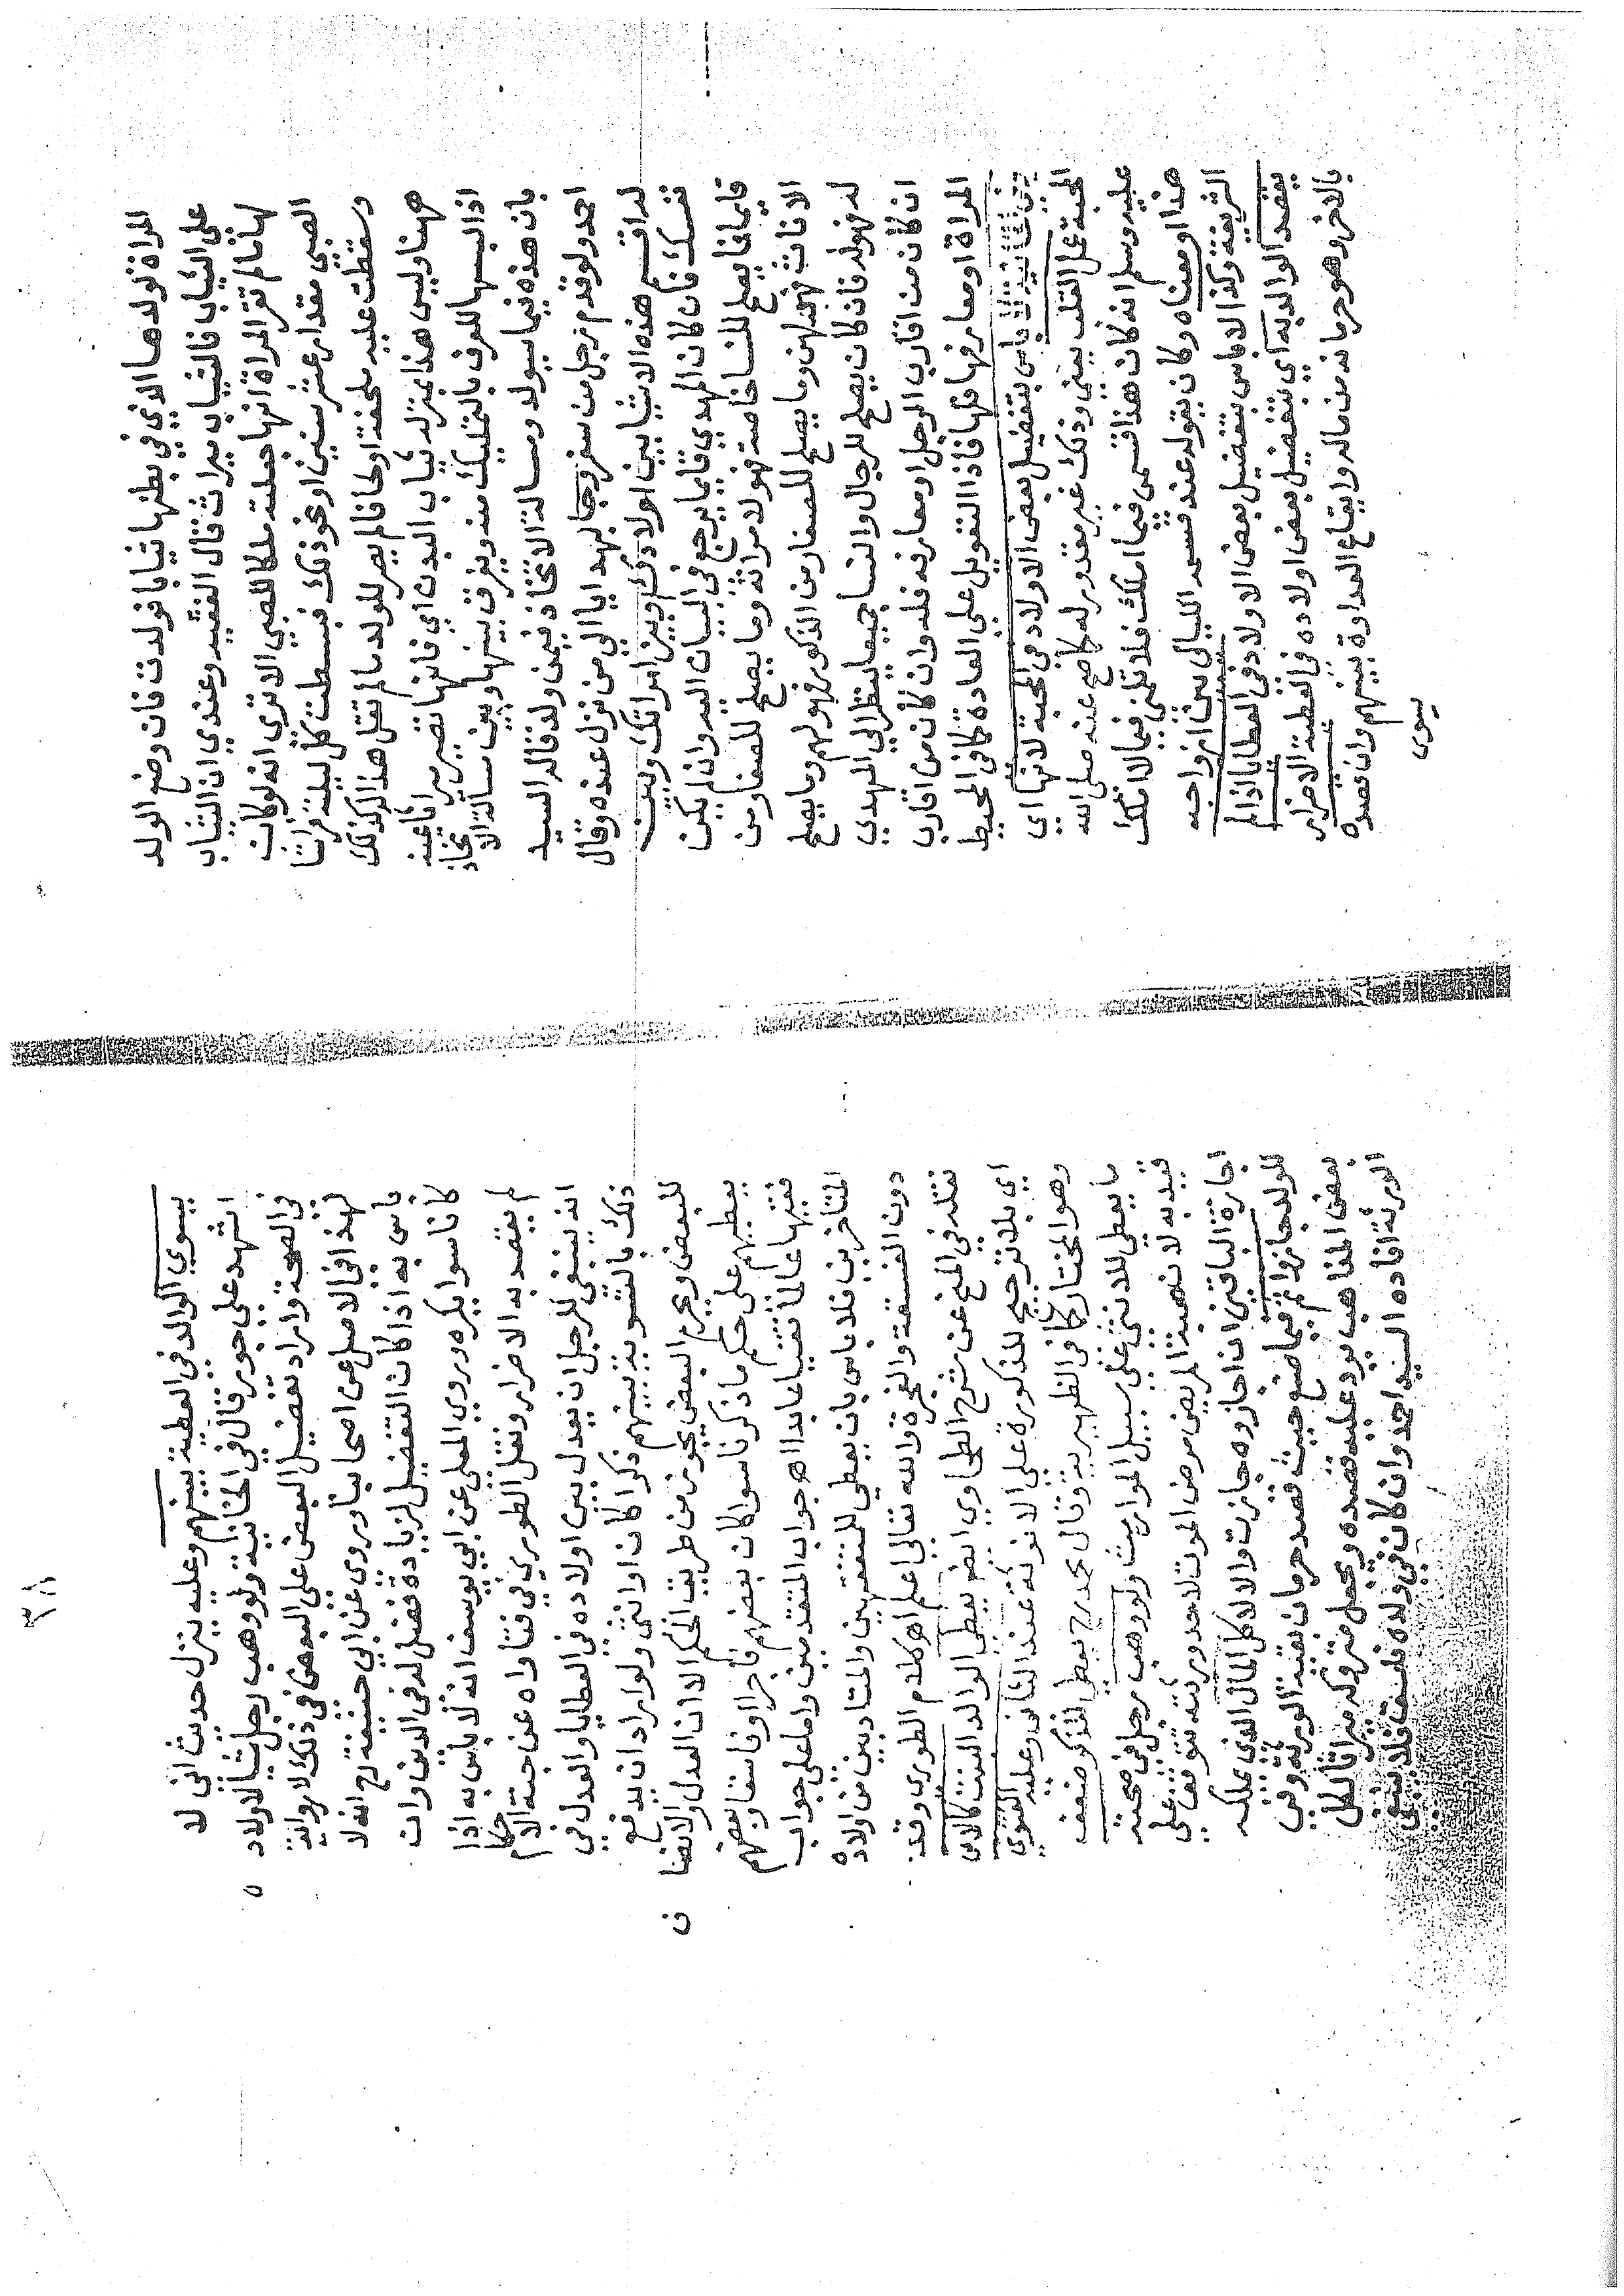 المراة لولدها الذي في بطنها ثيابا فولدت فان وضع الولد
على الثياب فالثياب ميراث قال الفقيه وعندي ان الثياب
لها ما لم تقر المراة انها جعلت ملكا للصبي الا ترى انه لو كان
الصبي مقدار عشر سنين او نحو ذلك فبسطت كل ليلة فراشا
وسقطت عليه ملحفة او لحافا لم يصر للولد ما لم تقل هذا لك كذلك
ههنا وليس هذا بمنزلة ثياب البدن اي فانها تصير ميراثا عنه
اذا البسها للعرف بالتمليك منه ويفرق بينها وبين مسالة الاتخاذ
بان هذه فيما سيولد ومسالة الاتخاذ فيمن ولد قاله السيد
احمد ولو قدم رجل من سفر وجا بهدايا الى من نزل عنده وقال
له اقسم هذه الاشيا بين اولادك وبين امراتك وبين
نفسك فان كان المهدي قائما يرجع في البيان اليه وان لم يكن
قائما فما يصلح للنسا خاصة فهو لامراته وما يصلح للصغار من
الاناث فهو لهن وما يصلح للصغار من الذكور فهو لهم وما يصلح
له فهو له فان كان يصلح للرجال والنسا جميعا ينظر الى المهدي
ان كان من اقارب الرجل او معارفه فله وان كان من اقارب
المراة او معارفها فلها فاذا التعويل على العادة كما في المحيط
وفي الخانية لا باس بتفضيل بعض الاولاد في المحبة لانها اي
المحبة عمل القلب يعني وذلك غير مقدور له كما صح عنه صلى الله
عليه وسلم انه كان هذا قسمي فيما املك فلا تلمني فيما لا املك
هذا او معناه وكان يقوله عند قسمه الليالي بين ازواجه
الشريفة وكذا لا باس بتفضيل بعض الاولاد في العطايا اذا لم
يقصد الوالد به اي بتفضيل بعض اولاده في العطية الاضرار
بالاخر وهو حرمانه من ماله وايقاع العداوة بينهم وان قصده
يسوى
٣١١
يسوي الوالد في العطية بينهم وعليه ينزل حديث اني لا
اشهد على جور قال في الخانية ولو وهب رجل شيا لاولاده
في الصحة واراد تفضيل البعض على البعض في ذلك لا رواية
لهذا في الاصل عن اصحابنا وروى عن ابي حنيفة رح انه لا
باس به اذا كان التفضيل لزيادة فضل له في الدين وان
كانا سوا يكره وروى المعلى عن ابي يوسف انه لا باس به اذا
لم يقصد به الاضرار ونقل الطوري في فتاواه عن جنة الاحكام
انه ينبغي للرجل ان يعدل بين اولاده في العطايا والعدل في
ذلك بالتسوية بينهم ذكرا كان او انثى ولو اراد ان يدفع
للبعض ويحرم البعض يجوز من طريق الحكم الا ان العدل والانصاف
يعطيهم على حكم ما ذكرنا سوا كان بعضهم فاجرا او فاسقا وبعضهم
فقيها عالما تقيا عابدا اهو جواب المتقدمين واما على جواب
المتاخرين فلا باس بان يعطي للمتفقهين والمتادبين من اولاده
دون الفسقة والفجرة والله تعالى اعلم اه كلام الطوري وقد
نقله في المنح عن شرح الطحاوي ايضا يعطي الوالد البنت كالابن
اي بلا ترجيح للذكورة على الانوثة عند الثاني وعليه الفتوى
وهو المختار كما في الظهيرية وقال محمد رح يعطي للذكر ضعف
ما يعطي للانثى على سبيل المواريث ولو وهب رجل في صحته
قيد به لان هبة المريض مرض الموت لاحد ورثته تتوقف على
اجازة الباقين ان اجازوه جازت والا لا كل المال الذي يملكه
للولد جاز واثم فيما صنع حيث قصد حرمان بقية الورثة وفي
بعض المذاهب يرد عليه قصده ويجعل متروكه ميراثا لكل
الورثة افاده السيد احمد وان كان في ولده فاسق فلا ينبغي